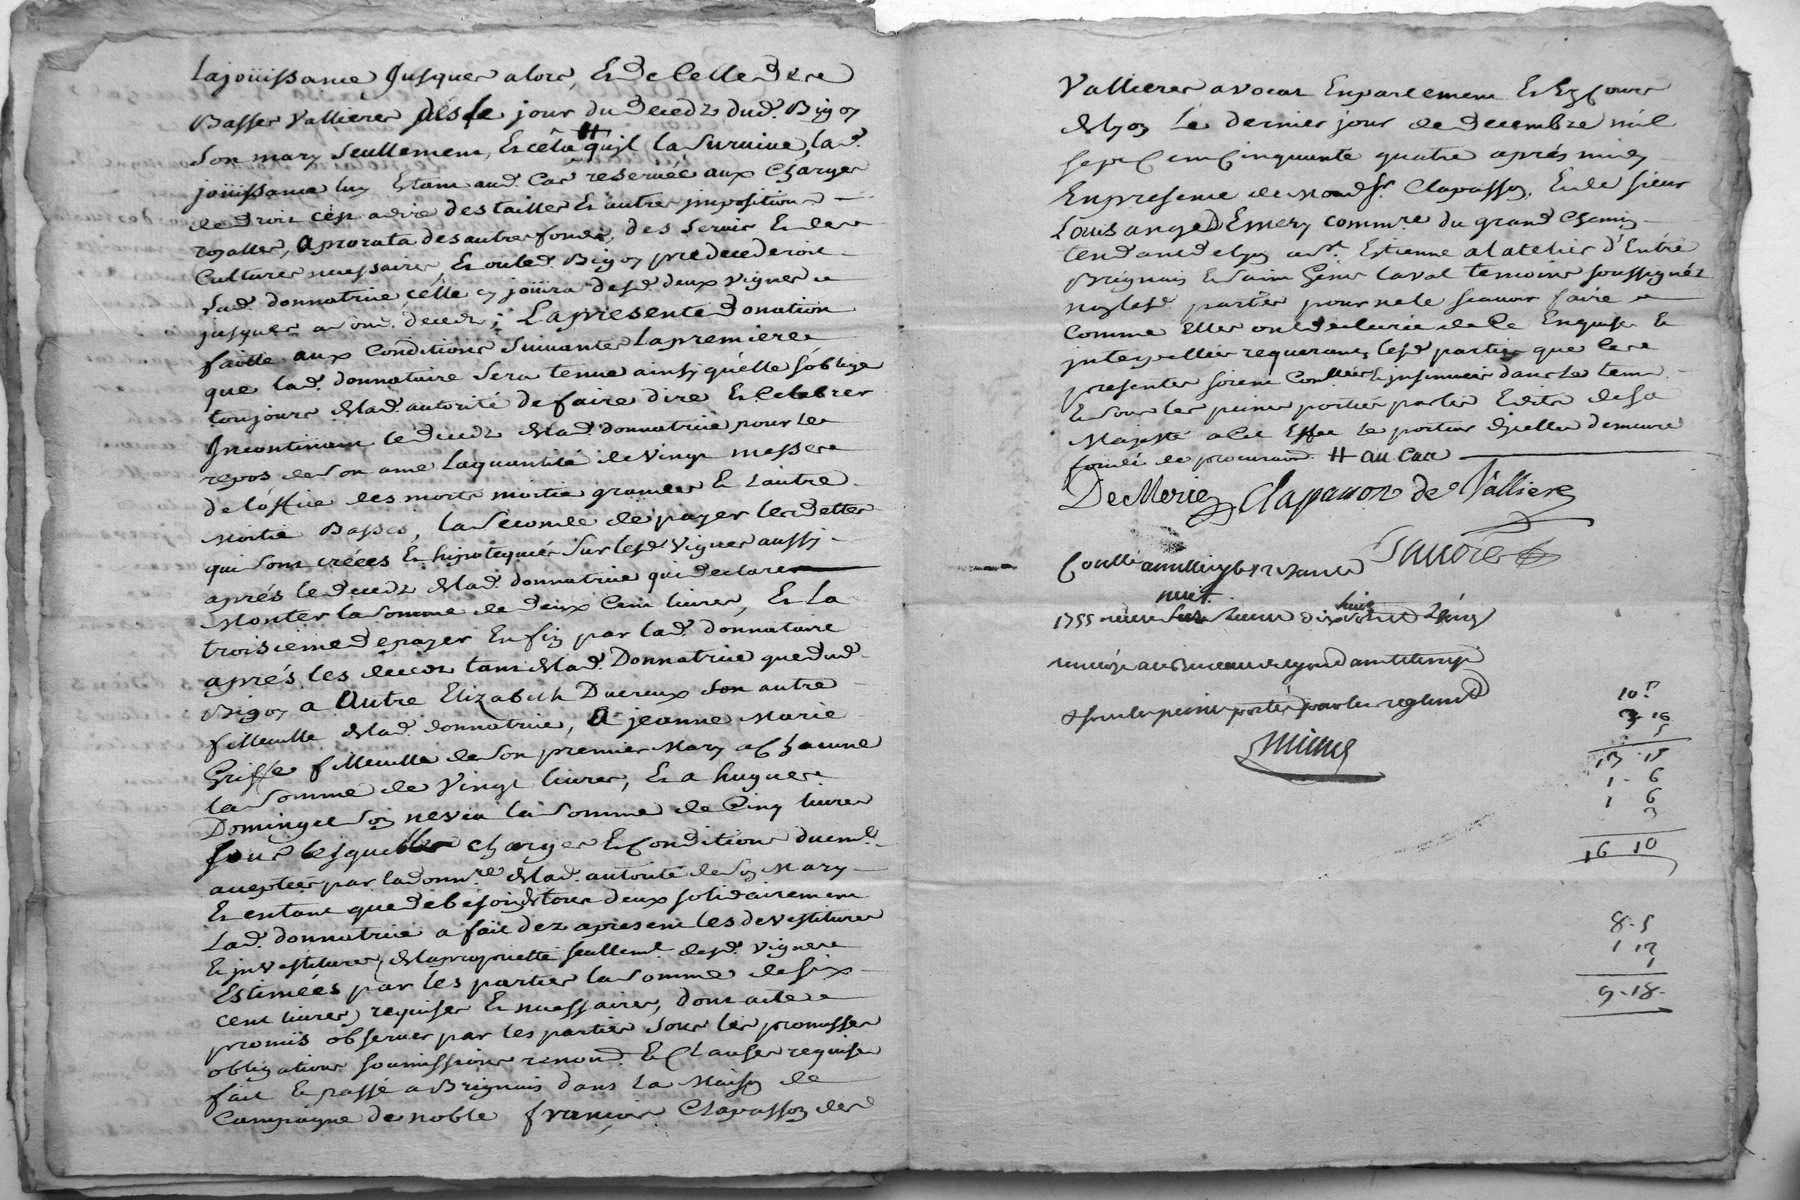 Lajoüissance Jusques alors, Et de Celle des
Basses Vallieres dés le jour du decedz dud. Bigoy
Son mary Seullement, Et cé # quil la Survive, lad.
joüissance luy Estant aud. Cas reservée aux Charges
de droit cest adire des tailles Et autres jmpositions
royalles, aprorata des autres fonds, des Servis Et des
Cultures necessaires, Et ou led. Bigoy predecederoit
Lad. donnatrice, celle cy joüira desd. deux Vignes
jusques a son decedz; La presente donation
faitte aux Conditions Suivantes La premiere
que lad. donnataire Sera tenue ainsy qu'elle s'oblige
toujours de lad. autorité de faire dire Et Celebrer
Incontinant le decedz de lad. donnatrice pour le
repos de son ame La quantité de vingt messes
de l'office des morts moitié grandes Et L'autre
Moitié Basses, la Seconde de payer les dettes
qui sont créées Et hipotequées Sur lesd. Vignes aussy
aprés le decedz de lad. donnatrice qui declare
Monter la somme de deux Cent livres, Et La
troisieme de payer Enfin par lad. donnataire
aprés les decedz tant de lad. Donnatrice que dud.
Bigoy a Autre Elizabeth Ducreux Son autre
filleulle de lad. donnatrice, a jeanne Marie
Griffe filleulle de Son premier Mary a Chacune
la Somme de Vingt livres, Et a hugues
Domingue Son neveu la Somme de Cinq livres
Sous lesquelles charges Et Conditions duem.t
aceptées par la donn.re de lad. autorité de Son Mary
Et entant que de besoin de tous deux solidairement
Lad. donnatrice a fait dez apresent les devestitures
Et jnvestitures de la proprietté seullem.t desd. Vignes
Estimées par les parties la Somme de Six
cent livres, requises Et necessaires, dont acte
promis observer par les parties Sous les promesses
obligations soumissions renond. Et Clauses requises
fait Et passé a Brignais dans La Maison de
Campagne de noble françois Clapasson de
Vallieres avocat En parlement Et Ez Cours
de Lyon Le dernier jour de decembre mil
sept Cent Cinquante quatre aprés midy
En presence de mond. Sr. Clapasson, Et de sieur
Louis ange D'Emery comm.re du grand Chemin
tendant de Lyon a St. Estienne a l'atelier d'Entre
Brignais Et Saint Genis Laval temoins soussignés
non lesd. parties pour ne le Scavoir faire
Comme Elles ont declaré de Ce Enquises Et
jnterpellées requerant lesd. parties que les
presentes Soient Conllées Et jnsinuées dans Le tems
Et Sous les peines portées par les Edits de Sa
Majesté a Cet Effet Le porteur d'jcelles demeure
fondé de procuration. # au Cas
DeMeriez Clapasson de Vallieres
Conllé
nuit
1755
10 "
3 16
13 15
1 6
1 6
3
16 10
8 5
1 12
1
9 18